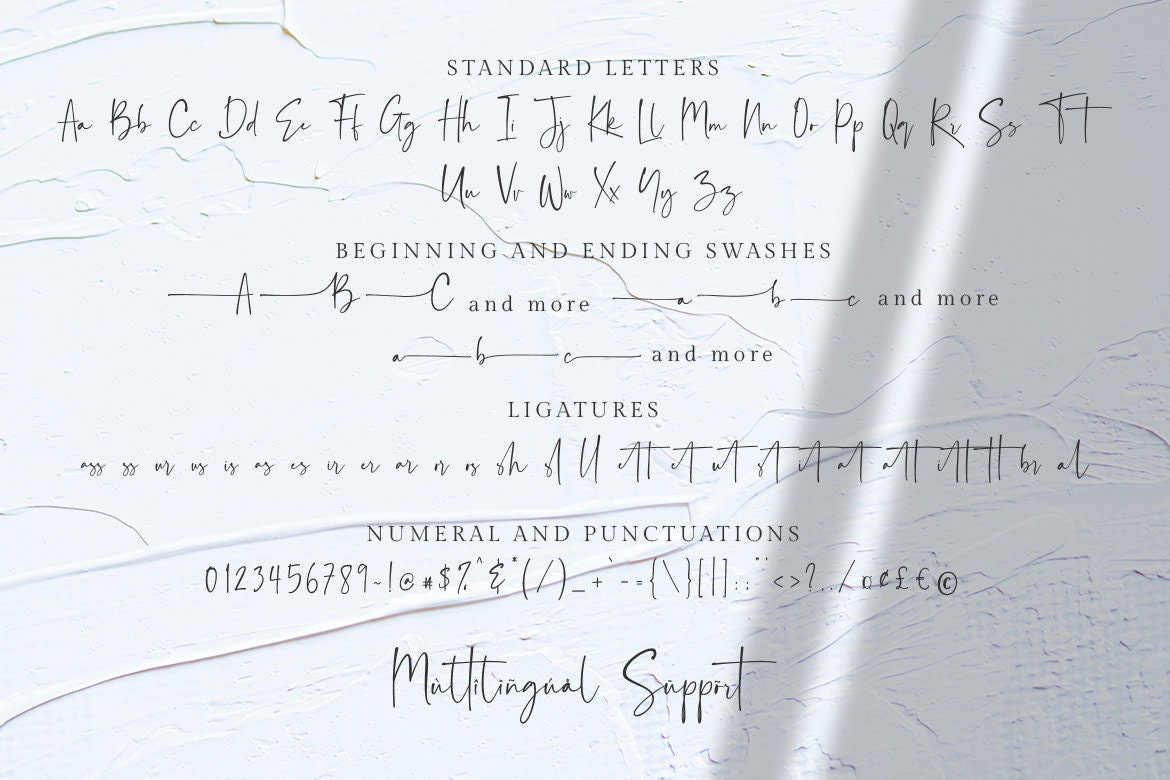 STANDARD LETTERS
Aa Bb Cc Dd Ee Ff Gg Hh Ii Jj Kk Ll Mm Nn Oo Pp Qq Rr Ss Tt
Uu Vv Ww Xx Yy Zz
BEGINNING AND ENDING SWASHES
A B C and more a b c and more
a b c and more
LIGATURES
ass ss ur us is as es ir er ar or os sh sl ll
br al
NUMERAL AND PUNCTUATIONS
0123456789~!@#$%^&*(/)_+`-={\}[|]:;"'<>?.,/¤¢£€©
Mùltîlíñgúâl Sùppör̃t